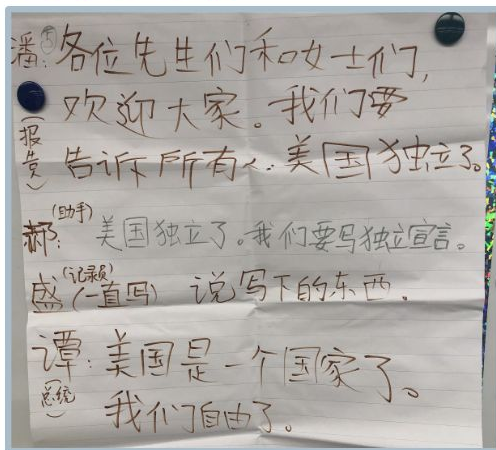 潘: 各位先生们和女士们,
(报告员) 欢迎大家。我们要
告诉所有人: 美国独立了。
郝(助手): 美国独立了。我们要写独立宣言。
盛(记录员)(一直写) 说写下的东西.
谭: 美国是一个国家了。
(总统) 我们自由了。